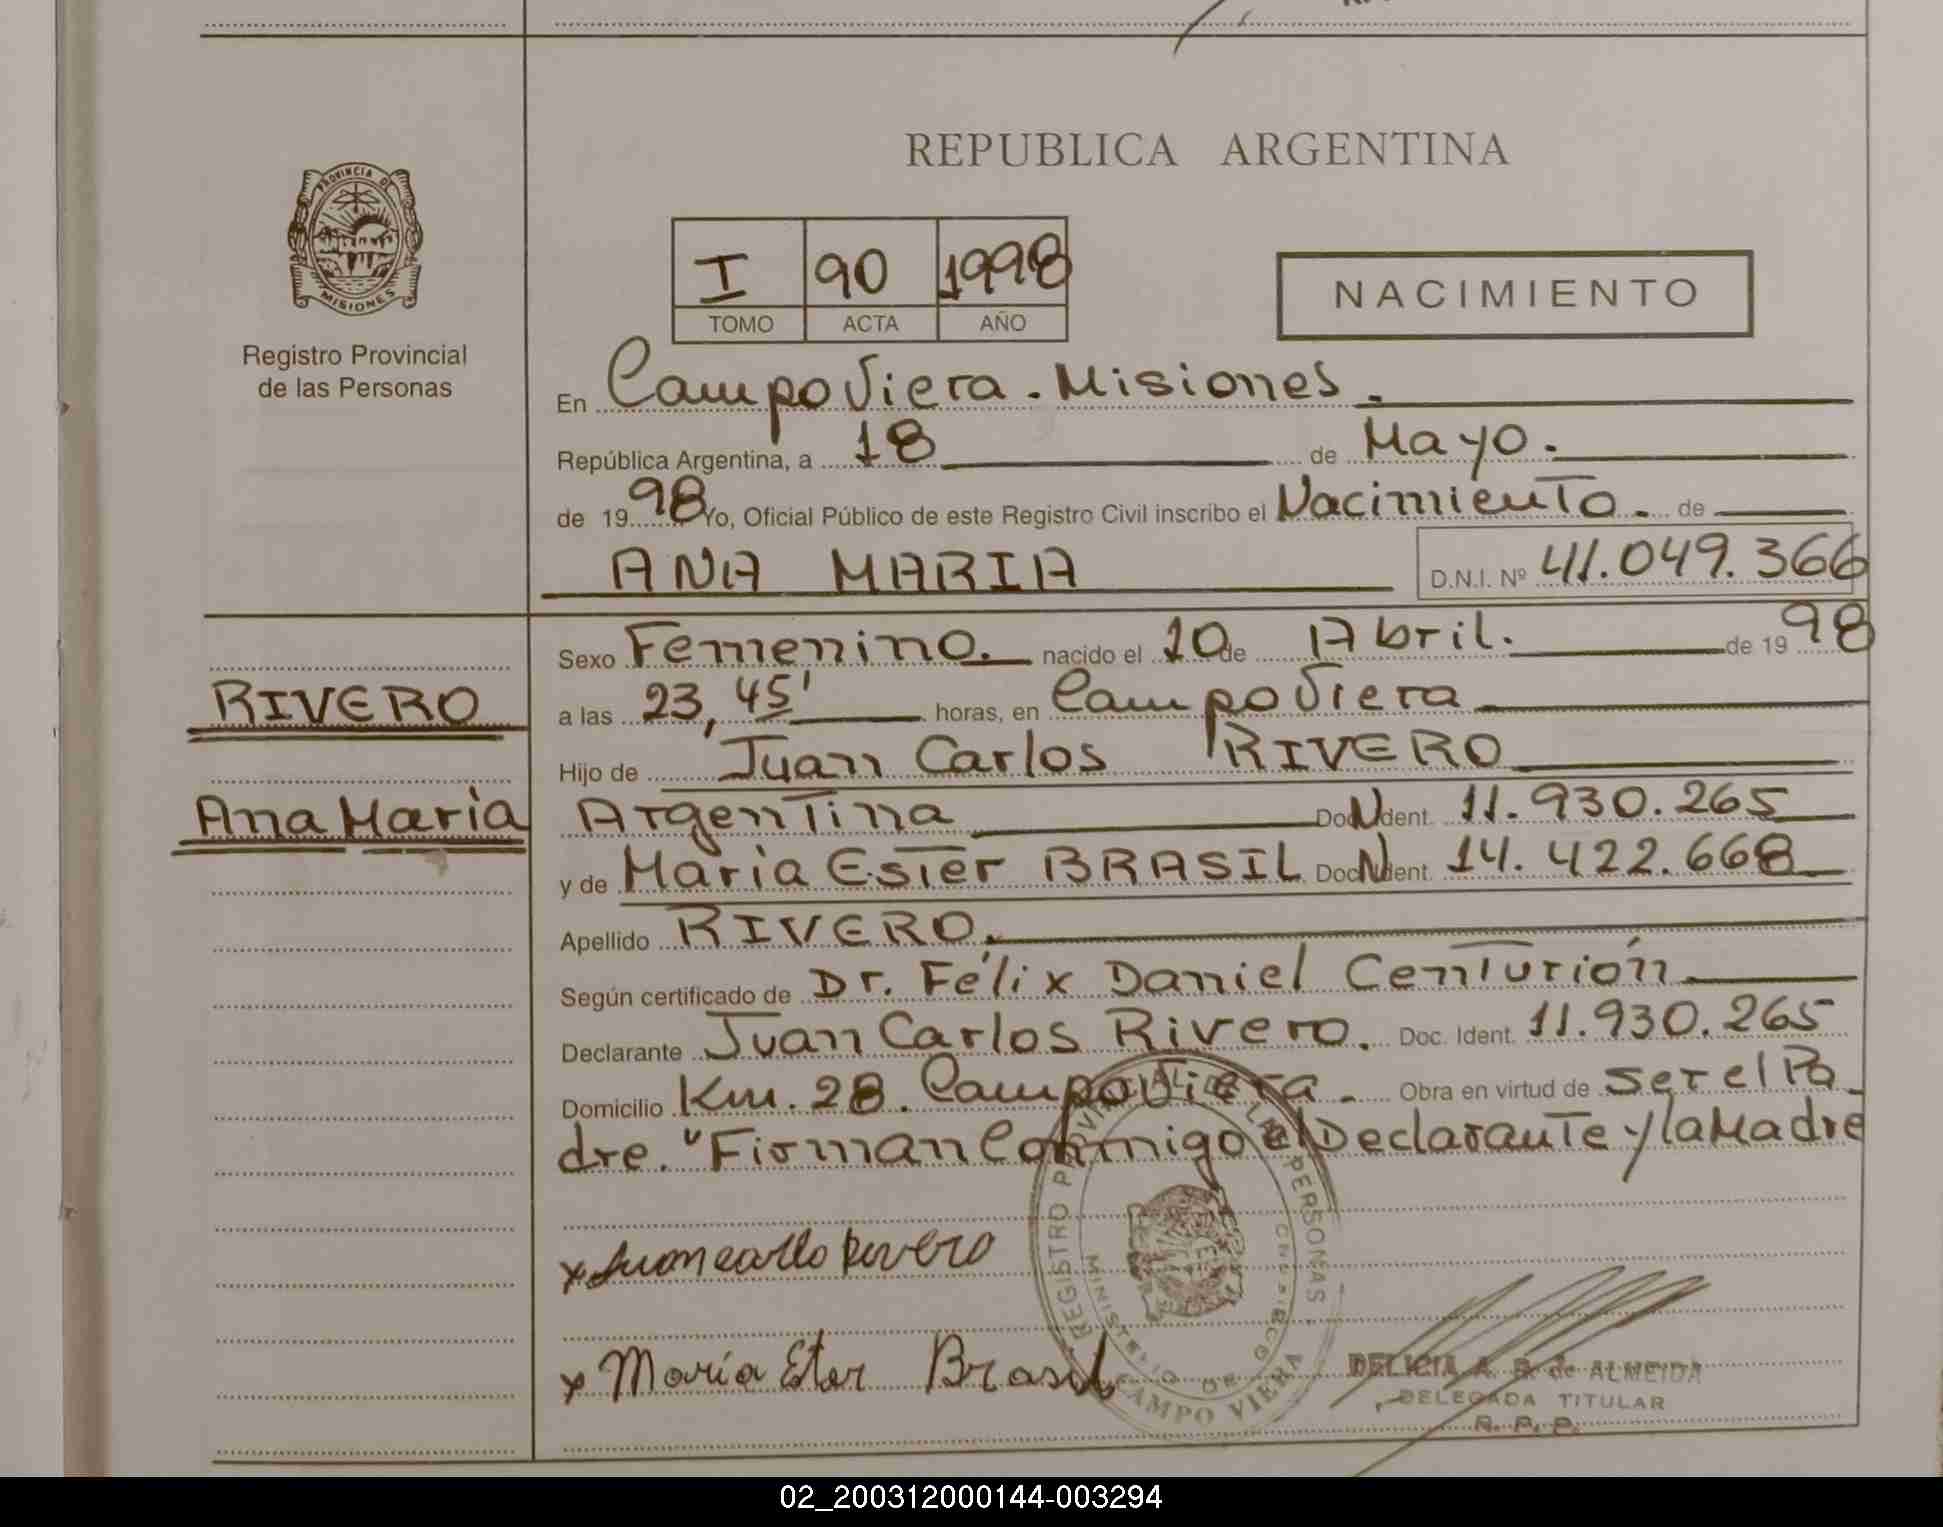 PROVINCIA DE
MISIONES
Registro Provincial
de las Personas
REPUBLICA ARGENTINA
I 90 1998
TOMO ACTA AÑO
NACIMIENTO
En Campo Viera. Misiones.
República Argentina, a 18 de Mayo.
de 1998 Yo, Oficial Público de este Registro Civil inscribo el Nacimiento. de
ANA MARIA D.N.I. Nº 41.049.366
RIVERO
Ana María
Sexo Femenino. nacido el 10 de Abril. de 1998
a las 23,45' horas, en Campo Viera
Hijo de Juan Carlos RIVERO
Argentina Doc N Ident. 11.930.265
y de María Ester BRASIL Doc N Ident. 14.422.668
Apellido RIVERO.
Según certificado de Dr. Félix Daniel Centurión
Declarante Juan Carlos Rivero. Doc. Ident. 11.930.265
Domicilio Km. 28. Campo Viera. Obra en virtud de ser el Pa
dre. "Firman Conmigo el Declarante y la Madre
x Juan carlo Rivero
x María Ester Brasil
REGISTRO PROVINCIAL DE LAS PERSONAS
MINISTERIO DE GOBIERNO
CAMPO VIERA
DELICIA A. B. de ALMEIDA
DELEGADA TITULAR
R. P. P.
02_200312000144-003294